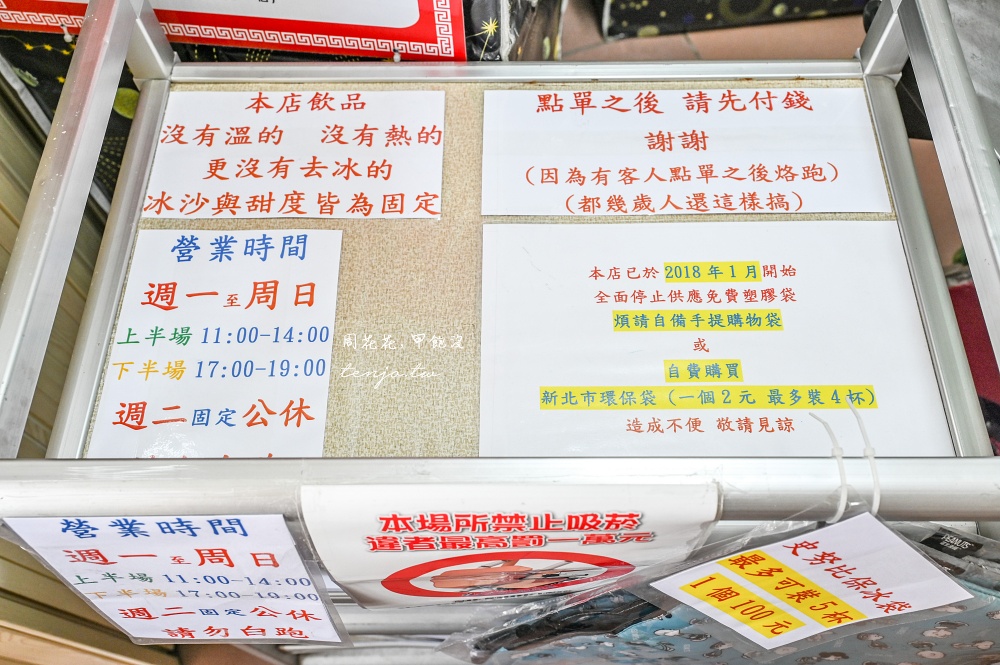 本店飲品
沒有溫的 沒有熱的
更沒有去冰的
冰沙與甜度皆為固定
點單之後 請先付錢
謝謝
(因為有客人點單之後烙跑)
(都幾歲人還這樣搞)
營業時間
週一至周日
上半場 11:00-14:00
下半場 17:00-19:00
週二固定公休
本店已於 2018 年 1 月開始
全面停止供應免費塑膠袋
煩請自備手提購物袋
或
自費購買
新北市環保袋 (一個 2 元 最多裝 4 杯)
造成不便 敬請見諒
周花花,甲飽沒
tenjo.tw
營業時間
週一至周日
上半場 11:00-14:00
下半場 17:00-19:00
週二固定公休
請勿白跑
本場所禁止吸菸
違者最高罰一萬元
史努比保冰袋
最多可裝 5 杯
1 個 100 元
PEANUTS